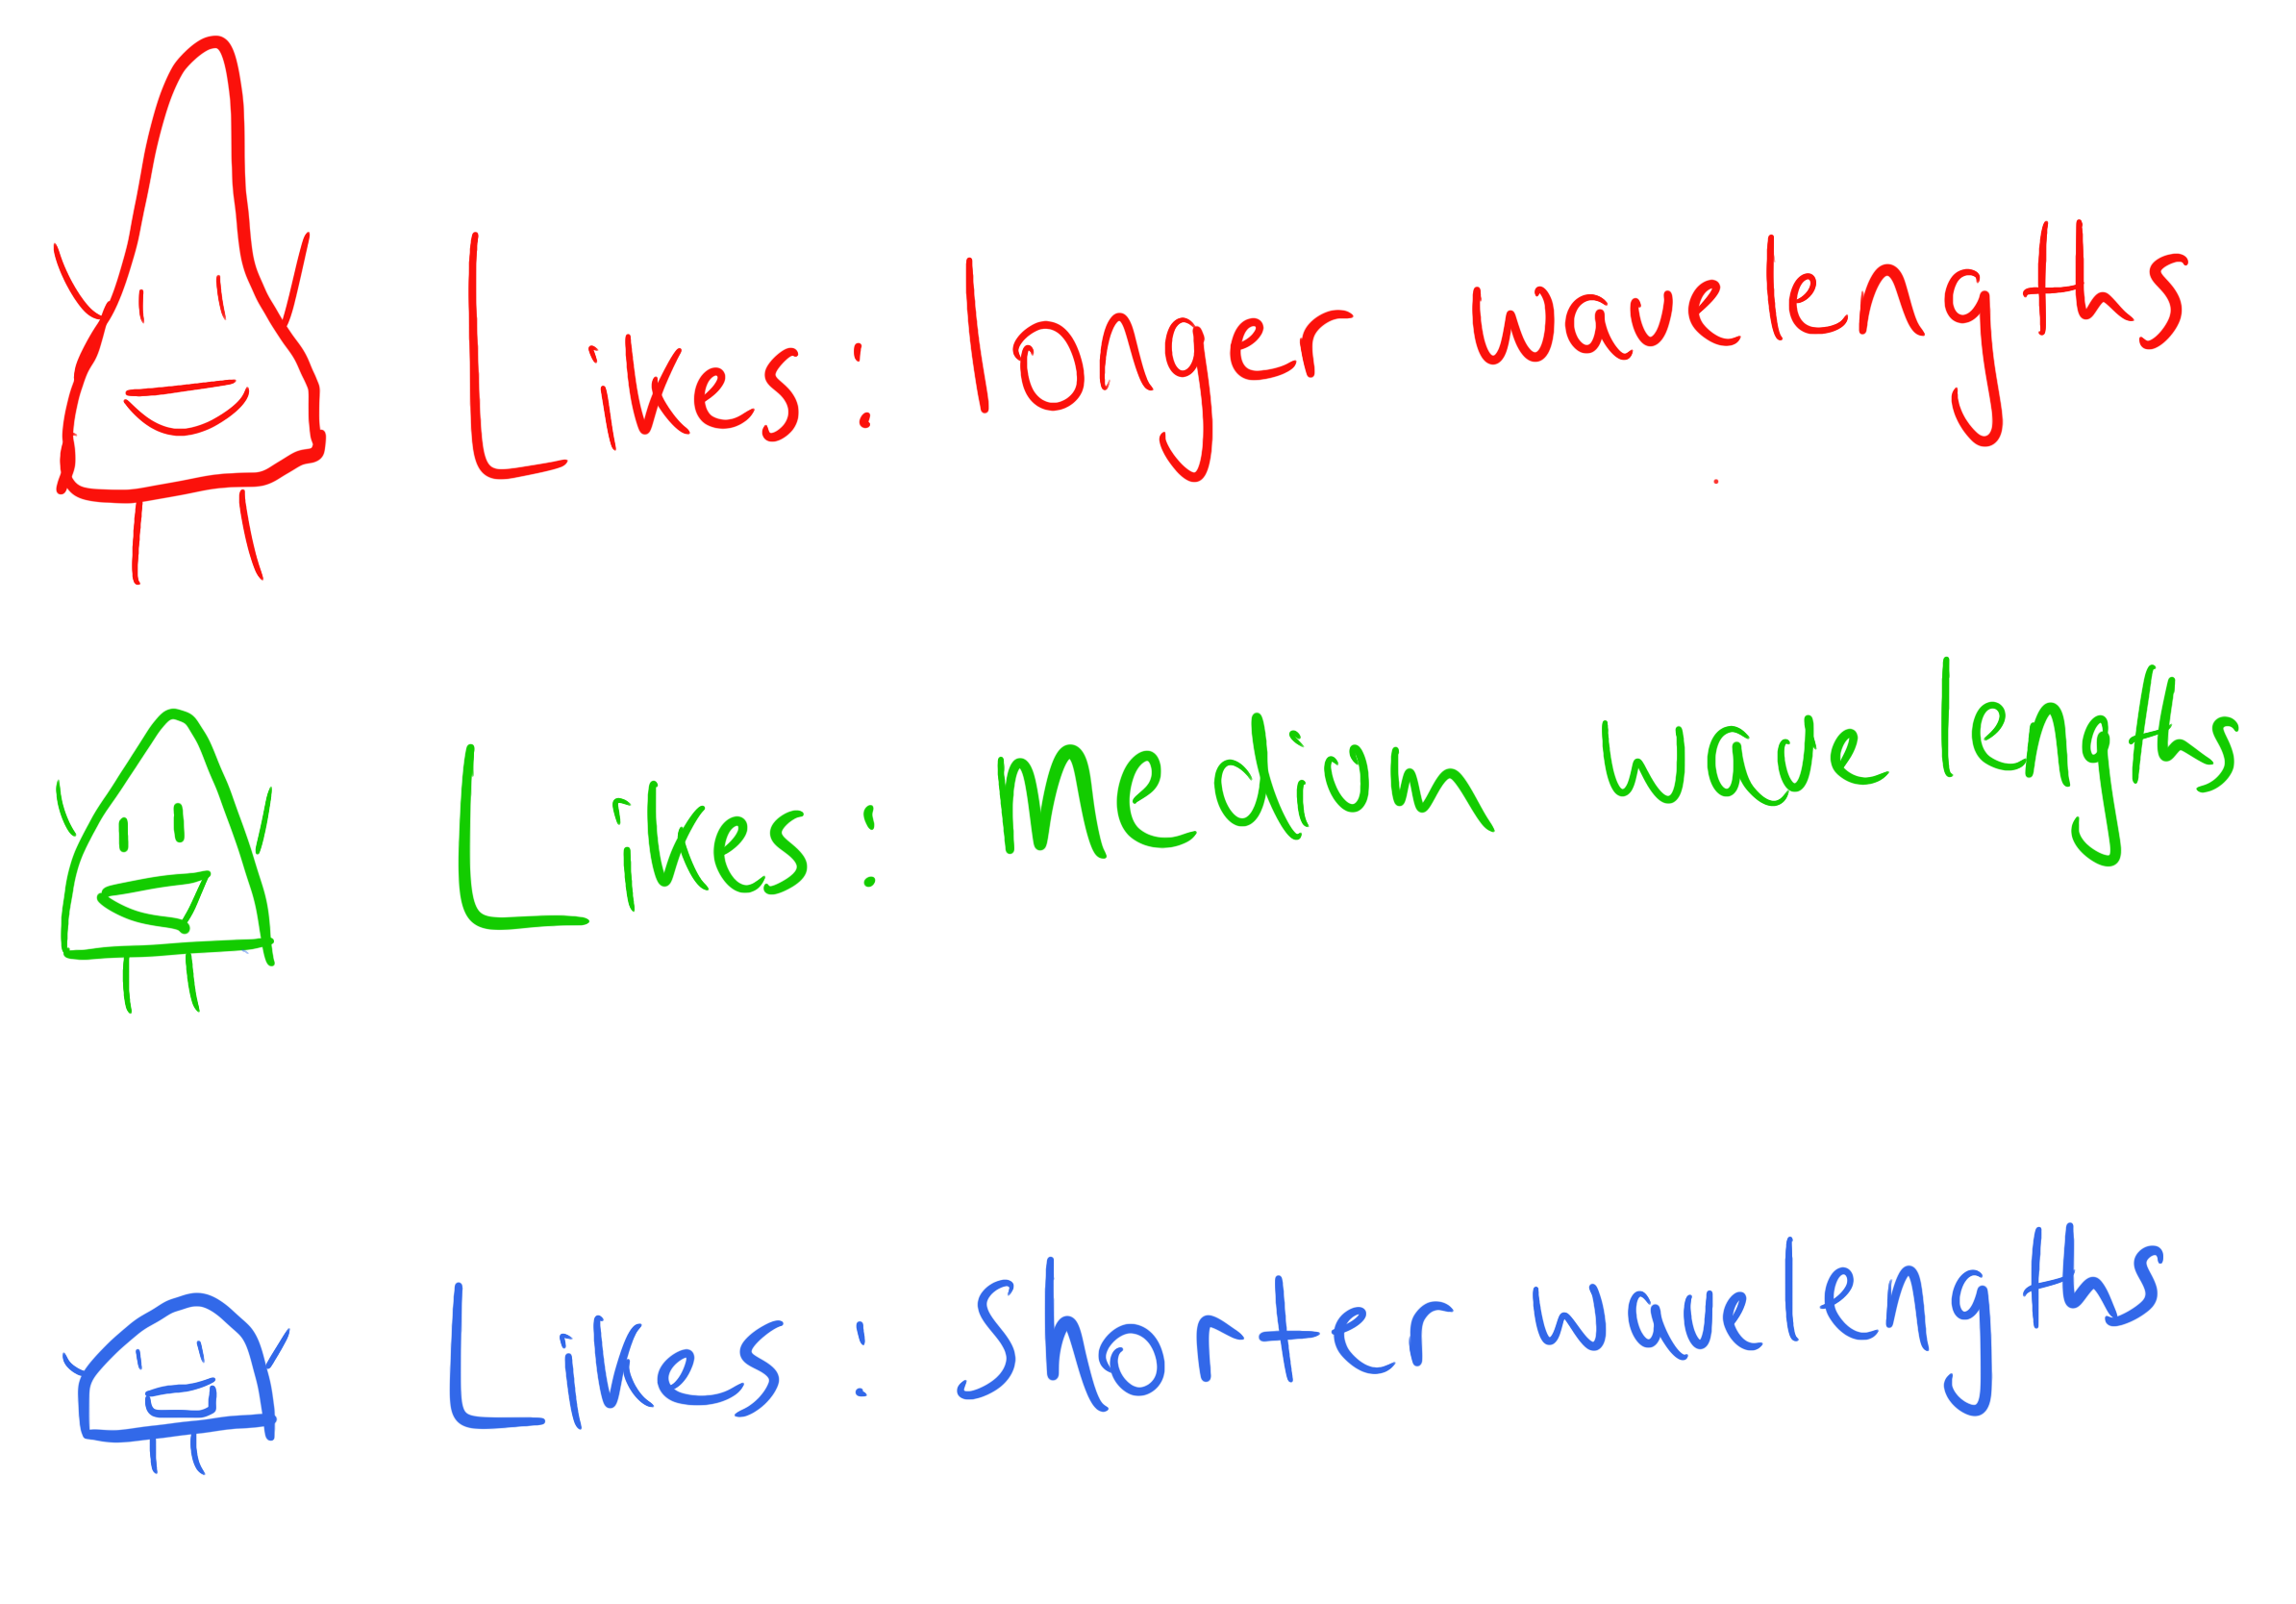 Likes: longer wavelengths
Likes: Medium wave lengths
Likes: shorter wave lengths